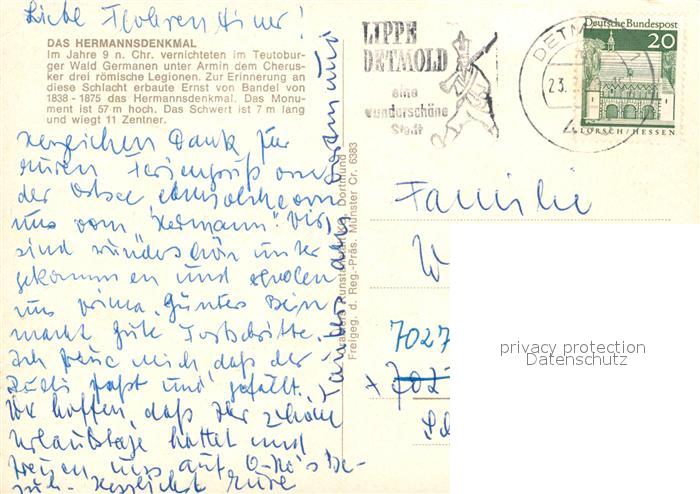 Liebe
DAS HERMANNSDENKMAL
Im Jahre 9 n. Chr. vernichteten im Teutobur-
ger Wald Germanen unter Armin dem Cherus-
ker drei römische Legionen. Zur Erinnerung an
diese Schlacht erbaute Ernst von Bandel von
1838 - 1875 das Hermannsdenkmal. Das Monu-
ment ist 57 m hoch. Das Schwert ist 7 m lang
und wiegt 11 Zentner.
Herzlichen Dank für
euren Feriengruß aus
der Ostsee,
uns vom "Hermann". Wir
sind wunderschön unter
gekommen und erholen
uns prima. Günters Bein
macht gute Fortschritte.
Ich freue mich, daß der
paßt und gefällt.
Wir hoffen, daß Ihr schöne
Urlaubstage hattet und
freuen uns auf Be-
such. Herzlichst Eure
Freigeg. d. Reg.-Präs. Münster Cr. 6383
LIPPE
DETMOLD
eine
wunderschöne
Stadt
DETMOLD 1
23.
Deutsche Bundespost
20
LORSCH/HESSEN
Familie
W
7027
privacy protection
Datenschutz